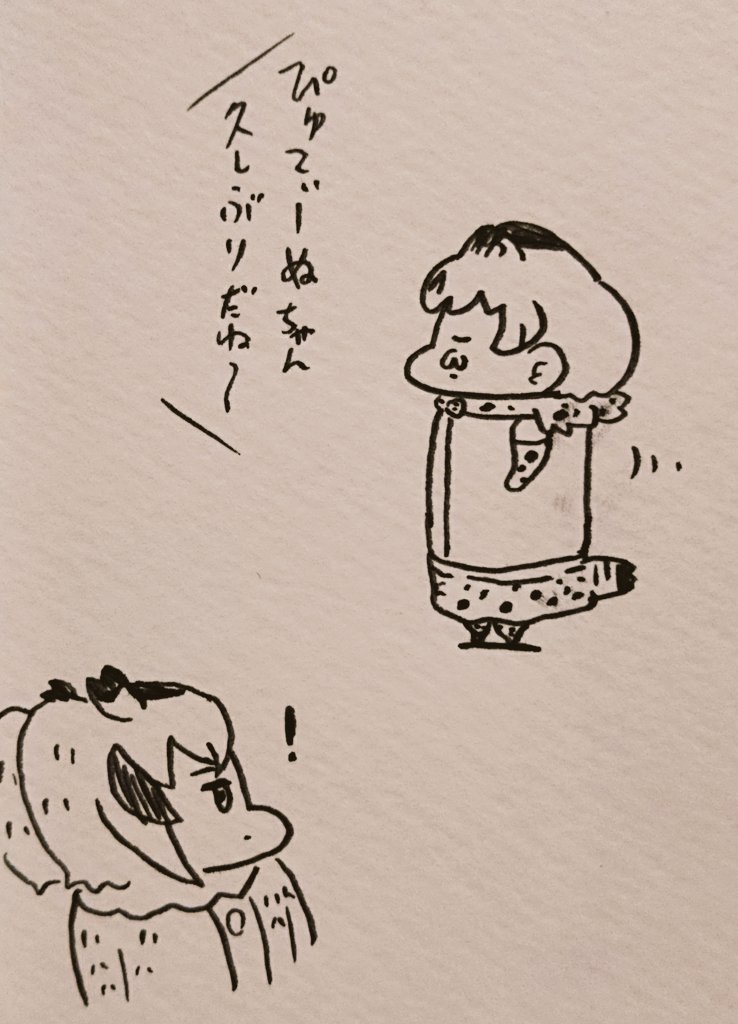 ぴゅてぃーぬちゃん
久しぶりだね〜
!